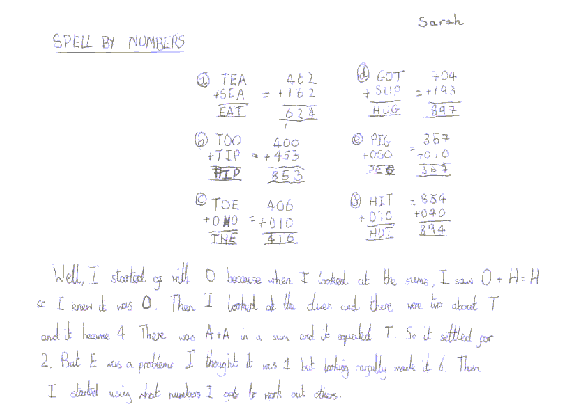 Sarah
SPELL BY NUMBERS
a TEA 462 d GOT 704
+SEA = +162 + SUP = +193
EAT 624 HUG 897
1
b TOO 400 e PIG 357
+TIP = +453 +OSO = +010
HIP 853 367
c TOE 406 HIT = 854
+ONO = +010 +OTO = +040
TNE 416 HDT 894
Well, I started of with O because when I looked at the sums, I saw O + H = H
so I knew it was O. Then I looked at the clues and there were two about T
and it became 4 There was A+A in a sum and it equaled T. So it settled for
2. But E was a problem I thought it was 1 but looking made it 6. Then
I started using what numbers I got to work out others.